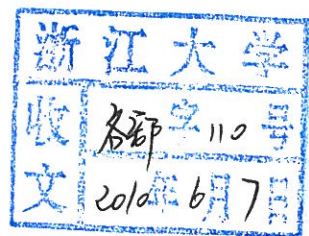 浙江大学
收文
各部字110号
2010年6月7日